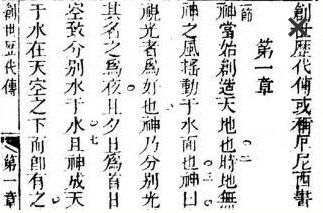 創世歷代傳或稱厄尼西書
第一章
節
神當始創造天地也〇二時地無
神之風搖動于水面也〇三神曰
視光者為好也神乃分別光
其名之為夜且夕且為首日
空致分別水于水〇七且神成天
于水在天空之下而卽有之
創世歷代傳
第一章